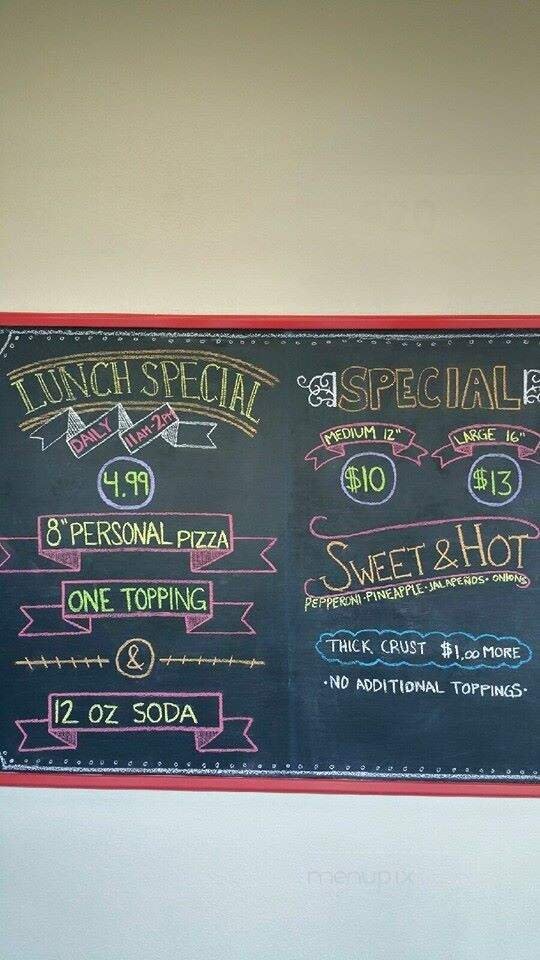 LUNCH SPECIAL
DAILY 11AM-2PM
4.99
8" PERSONAL PIZZA
ONE TOPPING
&
12 OZ SODA
SPECIAL
MEDIUM 12" LARGE 16"
$10 $13
SWEET & HOT
PEPPERONI·PINEAPPLE·JALAPEÑOS·ONIONS
THICK CRUST $1.00 MORE
·NO ADDITIONAL TOPPINGS·
menupix